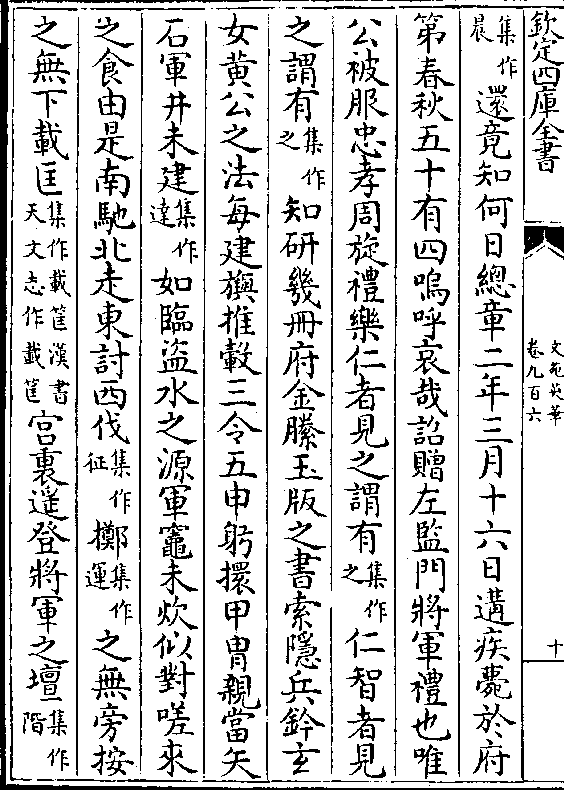 欽定四庫全書
文苑英華
卷九百六
十
集作晨還竟知何日總章二年三月十六日遘疾薨於府
第春秋五十有四嗚呼哀哉詔贈左監門將軍禮也唯
公被服忠孝周旋禮樂仁者見之謂有集作之仁智者見
之謂有集作之知研幾冊府金縢玉版之書索隱兵鈐玄
女黄公之法每建旟推轂三令五申躬擐甲冑親當矢
石軍井未建集作達如臨盗水之源軍竈未炊似對嗟來
之食由是南馳北走東討西伐集作征擲集作運之無旁按
之無下載匡集作載筐漢書天文志作載筐宫裏遥登將軍之壇集作階